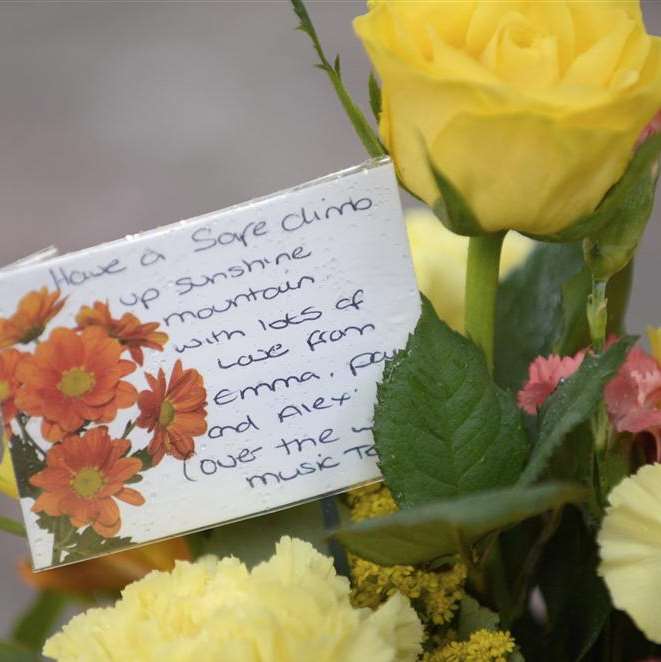 Have a Safe climb
up sunshine
mountain.
with lots of
Love from
Emma.
and Alex.
(over the
music